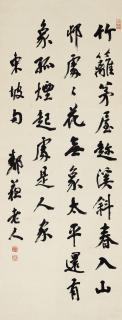 竹籬茅屋趁溪斜春入山
邨處〻花無象太平還有
象孤煙起處是人家
東坡句 鄭蘇老人